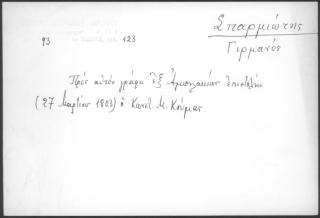 Σπαρμιώτης
Γερμανός
93 123
Πρὸς αὐτὸν γράφει ἐξ Ἀμπελακίων ἐπιστολὴν
(27 Μαρτίου 1803) ὁ Κωνστ. Μ. Κούμας.